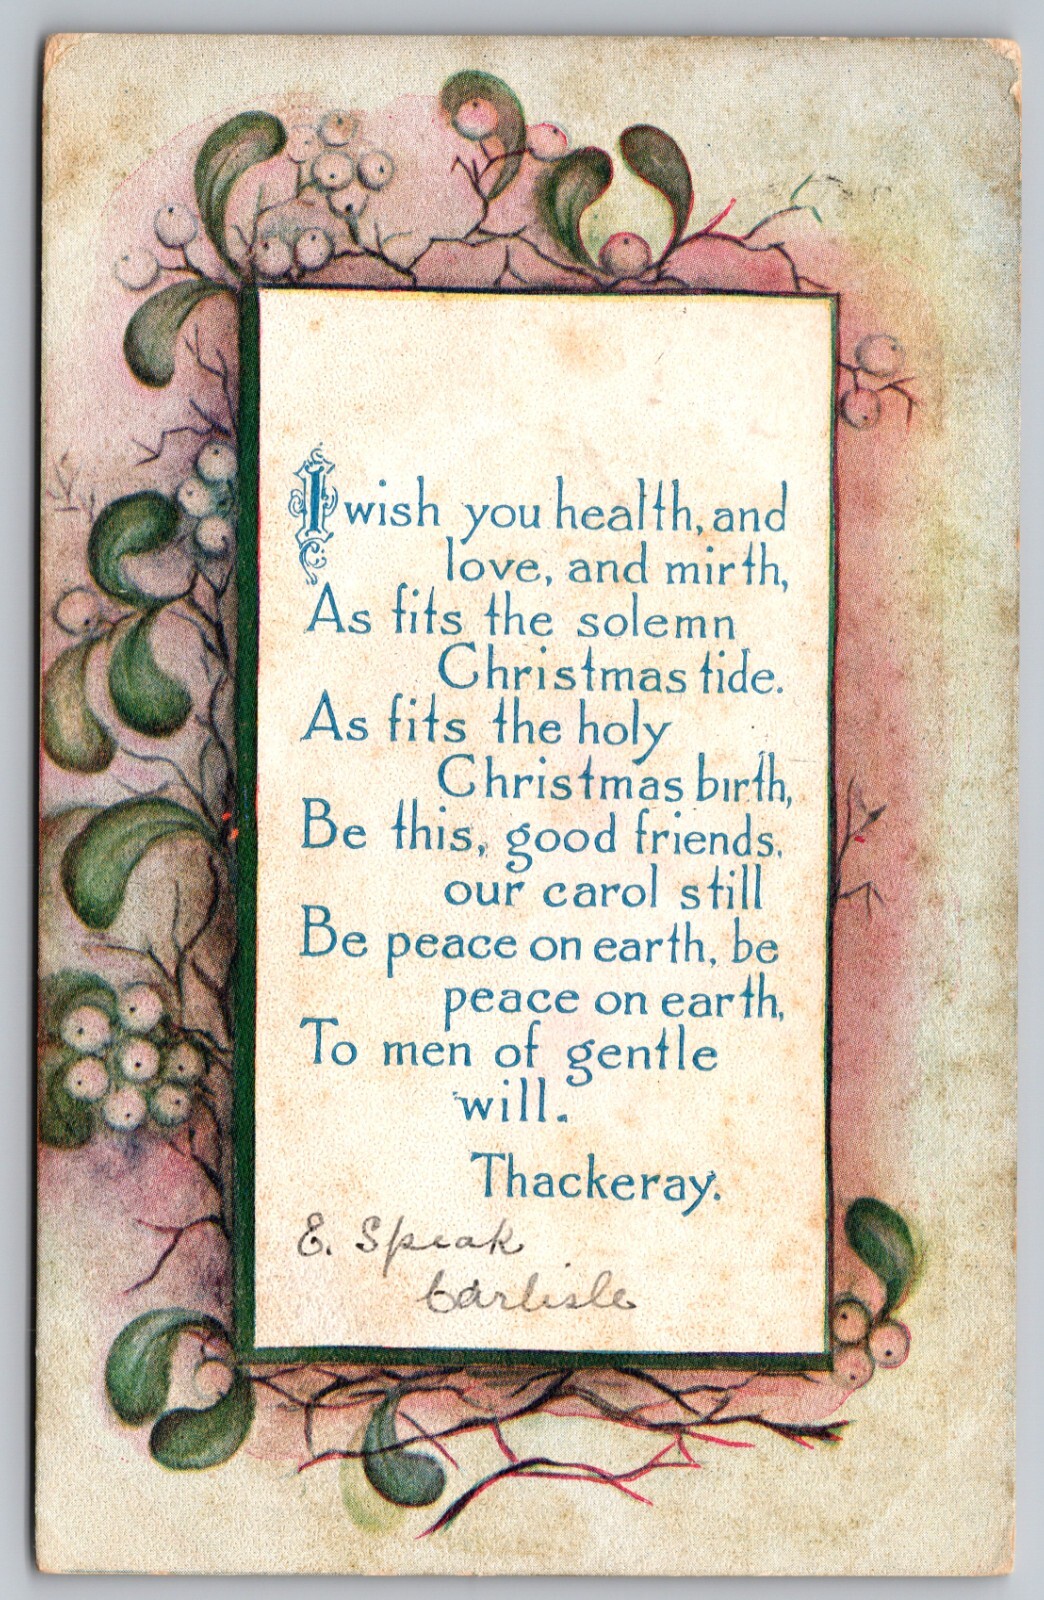 I wish you health, and
love, and mirth,
As fits the solemn
Christmas tide.
As fits the holy
Christmas birth,
Be this, good friends,
our carol still
Be peace on earth, be
peace on earth,
To men of gentle
will.
Thackeray.
E. Speak
Carlisle